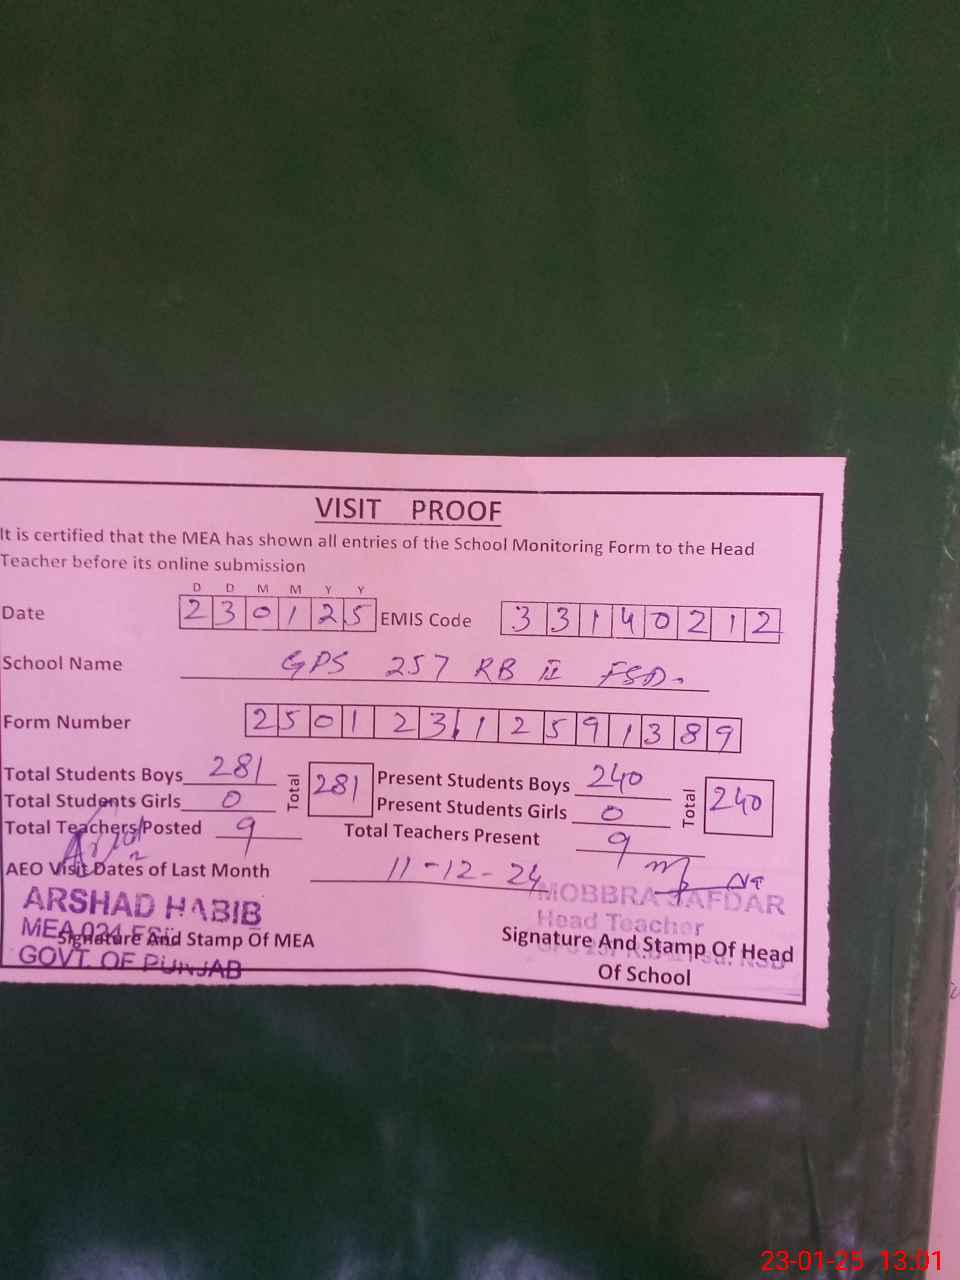 VISIT PROOF
It is certified that the MEA has shown all entries of the School Monitoring Form to the Head
Teacher before its online submission
D D M M Y Y
Date 2 3 0 1 2 5 EMIS Code 3 3 1 4 0 2 1 2
School Name GPS 257 RB II FSD.
Form Number 2 5 0 1 2 3 1 2 5 9 1 3 8 9
Total Students Boys 281 Total 281 Present Students Boys 240 Total 240
Total Students Girls 0 Present Students Girls 0
Total Teachers Posted 9 Total Teachers Present 9
AEO Visit Dates of Last Month 11-12-24
ARSHAD HABIB
MEA 024
GOVT. OF PUNJAB
Signature And Stamp Of MEA
MOBBRA SAFDAR
Head Teacher
Signature And Stamp Of Head
Of School
23-01-25 13:01